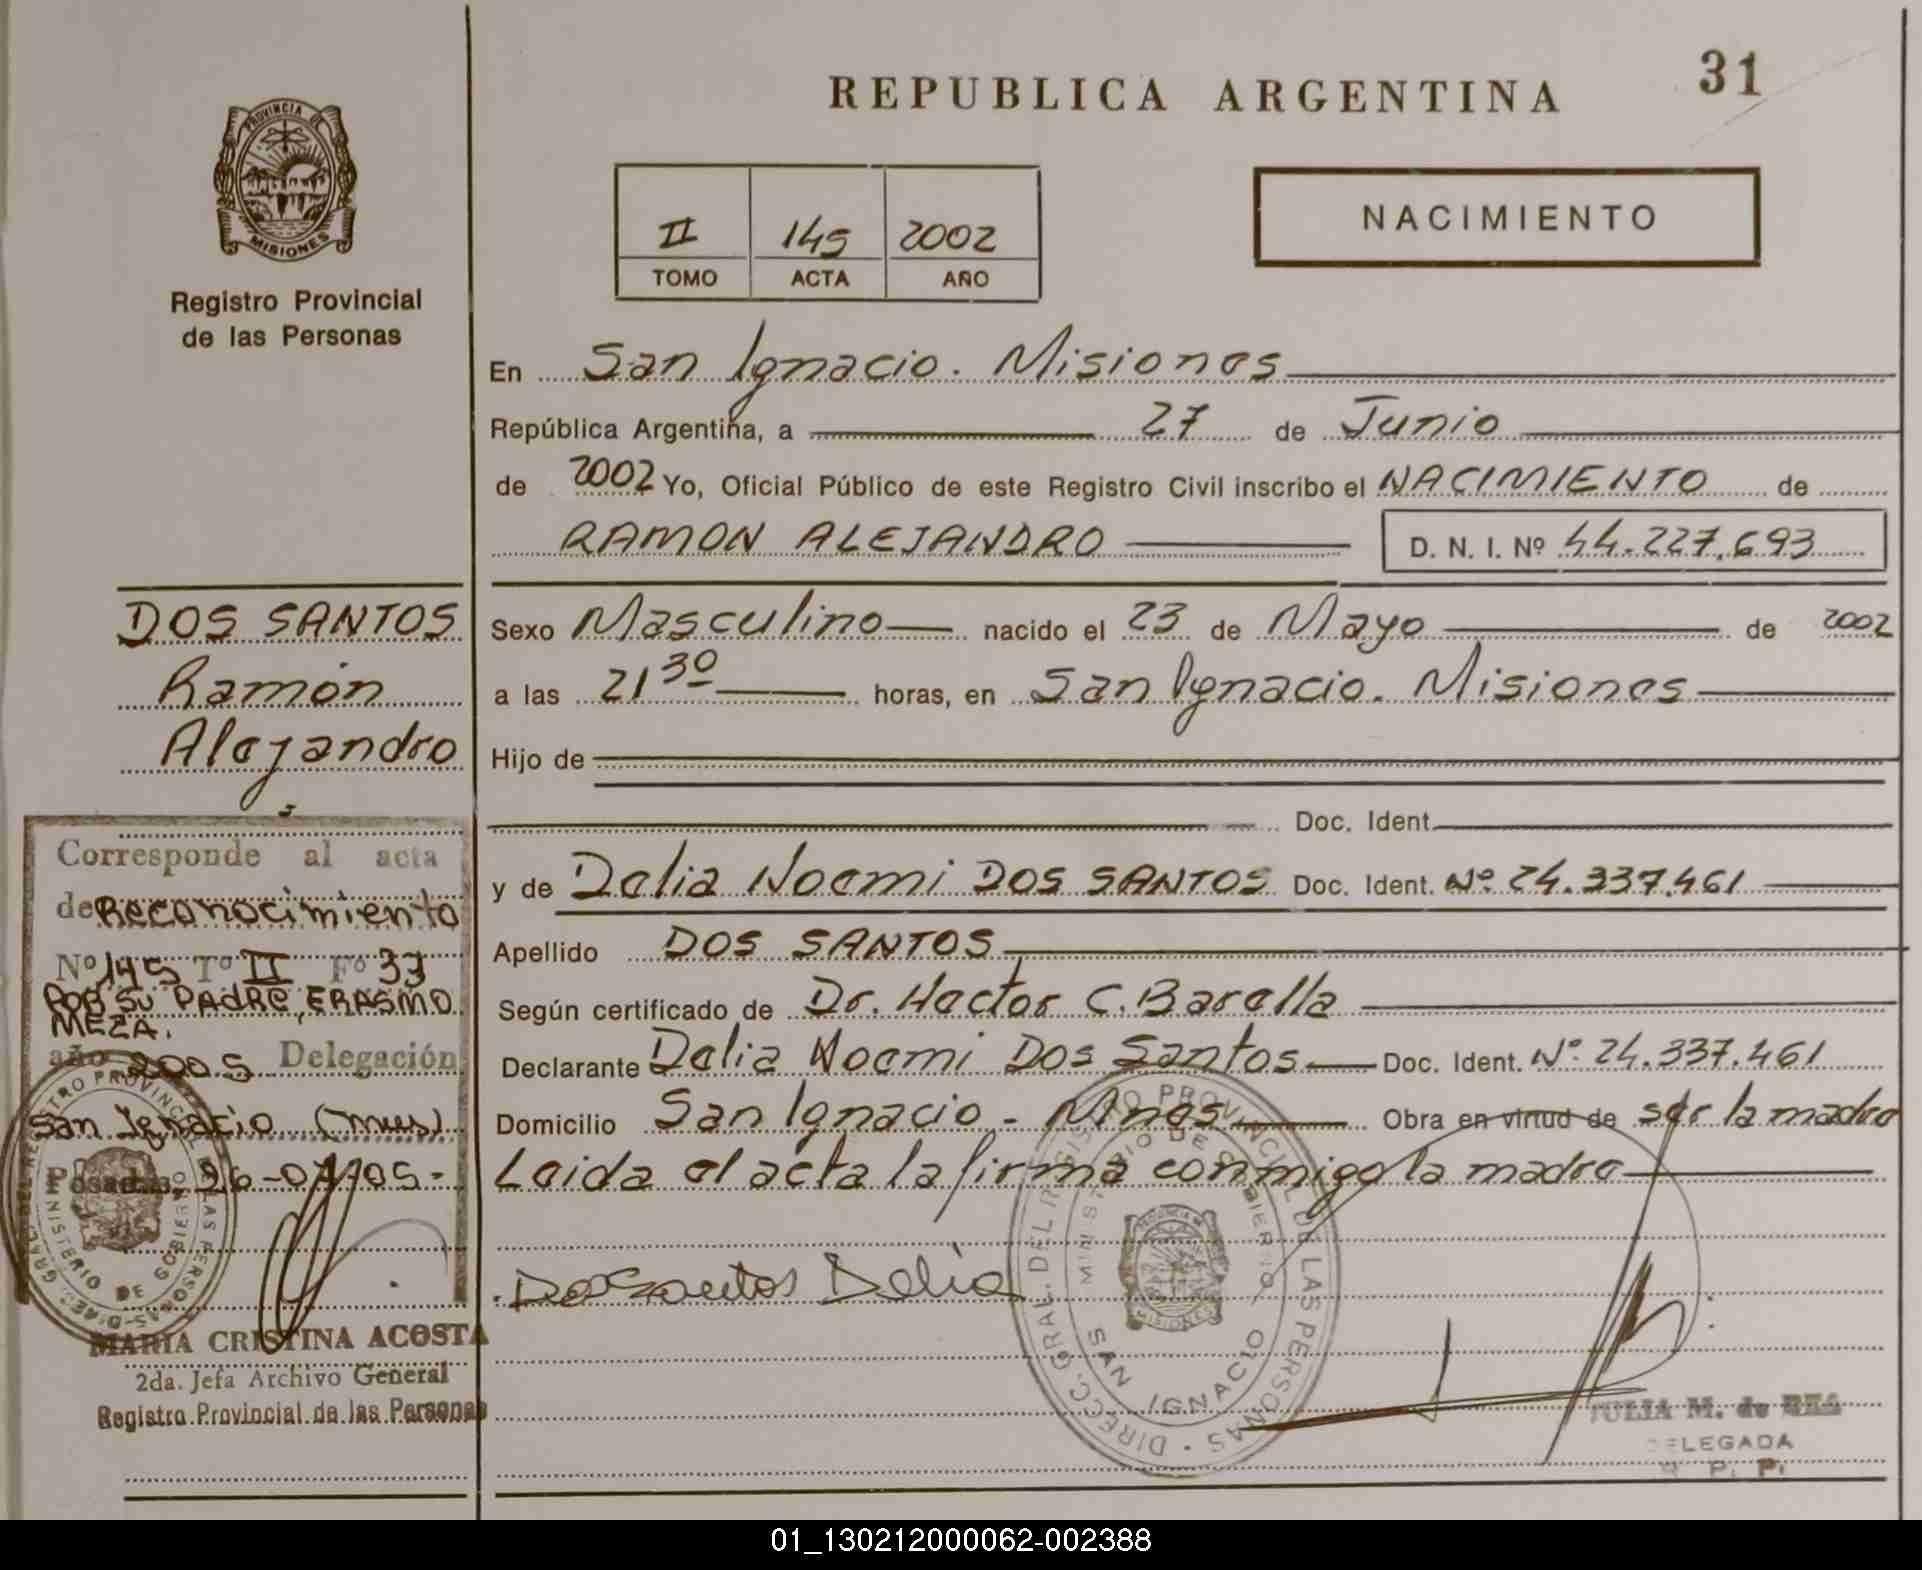 31
REPUBLICA ARGENTINA
PROVINCIA DE
MISIONES
Registro Provincial
de las Personas
II 145 2002
TOMO ACTA AÑO
NACIMIENTO
En San Ignacio. Misiones
República Argentina, a 27 de Junio
de 2002 Yo, Oficial Público de este Registro Civil inscribo el NACIMIENTO de
RAMON ALEJANDRO D. N. I. Nº 44.227.693
DOS SANTOS
Ramón
Alejandro
Sexo Masculino nacido el 23 de Mayo de 2002
a las 21 30 horas, en San Ignacio. Misiones
Hijo de
Doc. Ident.
y de Delia Noemi DOS SANTOS Doc. Ident. Nº 24.337.461
Apellido DOS SANTOS
Según certificado de Dr. Hector C. Barella
Declarante Delia Noemi Dos Santos Doc. Ident. Nº 24.337.461
Domicilio San Ignacio - Mnes Obra en virtud de ser la madre
Leida el acta la firma conmigo la madre
Dos Santos Delia
Corresponde al acta
de Reconocimiento
Nº 145 Tº II Fº 37
POR SU PADRE, ERASMO
MEZA.
año 2005 Delegación
San Ignacio (mnes)
Posadas, 26-07-05-
MARIA CRISTINA ACOSTA
2da. Jefa Archivo General
Registro Provincial de las Personas
DIRECC. GRAL. DEL REGISTRO PROVINCIAL DE LAS PERSONAS
MINISTERIO DE GOBIERNO
SAN IGNACIO
JULIA M. de
DELEGADA
R. P. P.
01_130212000062-002388